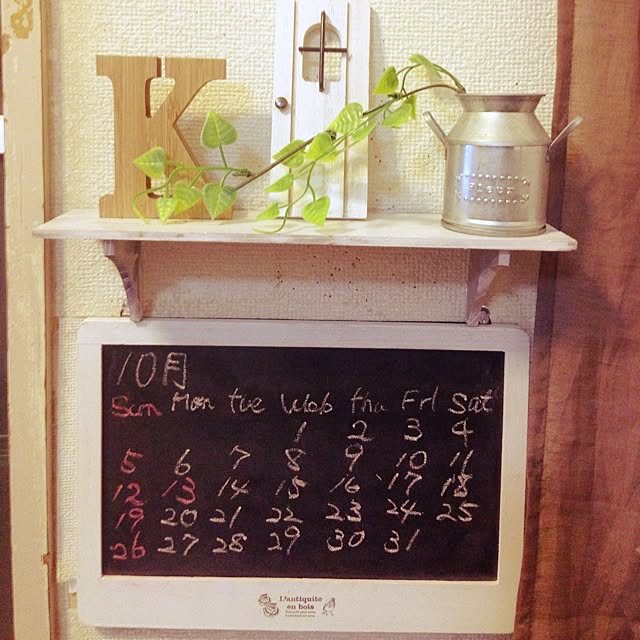 K
Fleur
10月
Sun Mon tue Web thu Fri Sat
1 2 3 4
5 6 7 8 9 10 11
12 13 14 15 16 17 18
19 20 21 22 23 24 25
26 27 28 29 30 31
L'antiquite
en bois